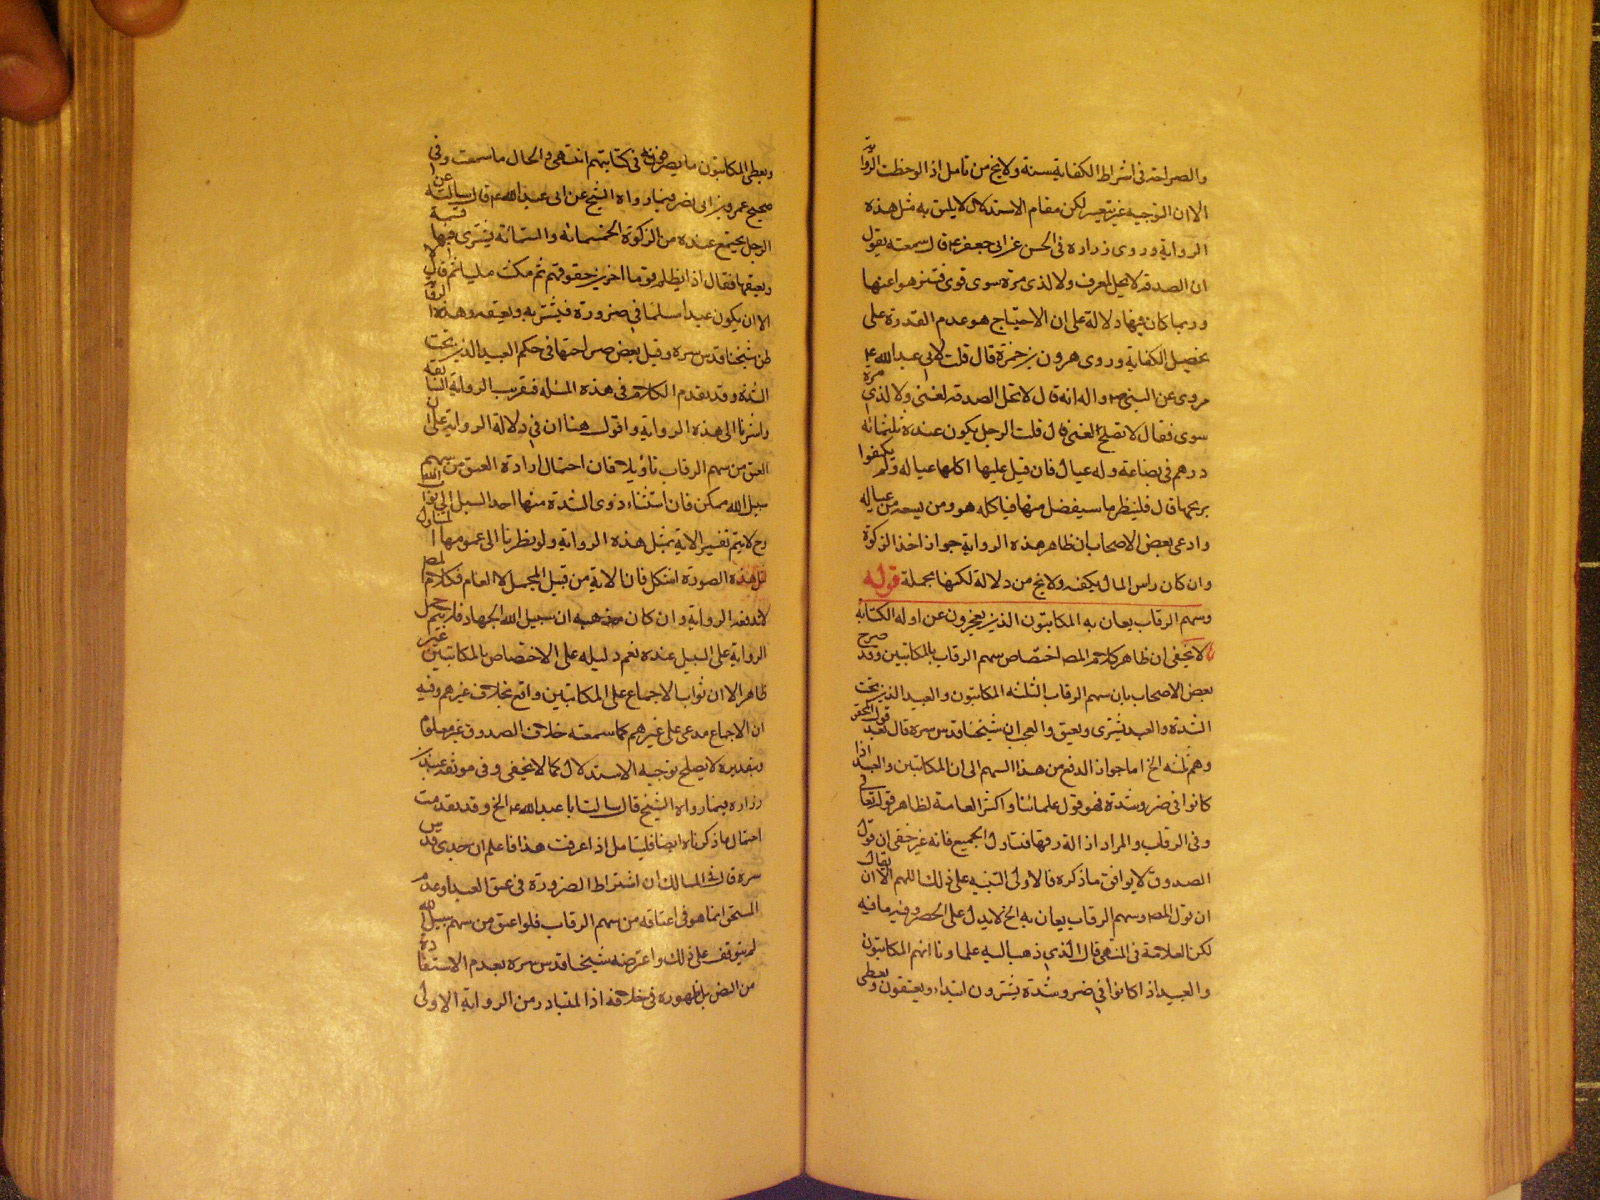 والصراحة في اشراط الكفاية سنة ولا يخ من تامل اذا لوحظت الرواية
الا ان التوجيه غير متعسر لكن مقام الاستدلال لا يليق به مثل هذه
الرواية وروى زرارة في الحسن عن ابي جعفر ع قال سمعته يقول
ان الصدقة لا تحل لمحترف ولا لذي مرة سوى قوى فتنزهوا عنها
وربما كان فيها دلالة على ان الاحتياج هو عدم القدرة على
تحصيل الكفاية وروى هرون بن حمزة قال قلت لابي عبد الله ع
مروى عن النبي ص واله انه قال لا تحل الصدقة لغنى ولا لذي مرة
سوى فقال لا تصلح لغنى قال قلت الرجل يكون عنده ثلثمائة
درهم في بضاعة وله عيال فان قبل عليها اكلها عياله ولم يكتفوا
بربحها قال فلينظر ما يستفضل منها فياكله هو ومن يسعه من عياله
وادعى بعض الاصحاب ان ظاهر هذه الرواية جواز اخذ الزكوة
وان كان راس المال يكفيه ولا يخ من دلالة لكنها مجملة قوله
وسهم الرقاب يعان به المكاتبون الذين يعجزون عن اداء الكتابة
لا يخفى ان ظاهر كلام المصـ اختصاص سهم الرقاب بالمكاتبين وقد صرح
بعض الاصحاب بان سهم الرقاب الثلثة المكاتبون والعبيد الذين تحت
الشدة والعبد يشترى ويعتق والعجب ان شيخنا قدس سره قال بعد قول المحقق
وهم ثلثة الخ اما جواز الدفع من هذا السهم الى ان المكاتبين والعبيد اذا
كانوا في ضر وشدة فهو قول علمائنا واكثر العامة لظاهر قوله تعالى
وفي الرقاب والمراد ازالة رقها فتناول الجميع فانه غير خفى ان قول
الصدوق لا يوافق ما ذكره فالاولى التنبيه على ذلك اللهم الا ان يقال
ان قول المصـ وسهم الرقاب يعان به الخ لا يدل على الحصر وفيه ما فيه
لكن العلامة في المنتهى قال الذي ذهب اليه علماونا انهم المكاتبون
والعبيد اذا كانوا في ضر وشدة يشترون ابتداء ويعتقون ويعطى
ويعطى المكاتبون ما يصرفونه في كتابتهم انتهى والحال ما سمعت وفي
صحيح عمرو بن ابي نصر فيما رواه الشيخ عن ابى عبد الله ع قال سالته عن
الرجل يجتمع عنده من الزكوة الخمسمائة والستمائة يشترى فيها نسمة
ويعتقها فقال اذا يظلم قوما اخرين حقوقهم ثم مكث مليا ثم قال
الا ان يكون عبدا مسلما في ضرورة فيشتريه ويعتقه وهذه الرواية
ظن شيخنا قدس سره وقبل بعض صراحتها في حكم العبيد الذين تحت
الشدة وقد تقدم الكلام في هذه المسئلة بتقريب الرواية السابقة
واشرنا الى هذه الرواية واقول هنا ان في دلالة الرواية على ان
العتق من سهم الرقاب تاويلا فان احتمال ارادة العتق من سهم
سبيل الله ممكن فان استثناء ذوى الشدة منها احد السبل الى الله
وح لا يتم تفسير الاية بمثل هذه الرواية ولو نظرنا الى عمومها
لمثل هذه الصورة اشكل بان الاية من قبيل المجمل لا العام فكلام المصـ
لا تدفعه الرواية وان كان مذهبه ان سبيل الله الجهاد فلا يتم حمل
الرواية على السبيل عنده نعم دليله على الاختصاص بالمكاتبين غير
ظاهر الا ان ثواب الاجماع على المكاتبين واقع بخلاف غيرهم وفيه
ان الاجماع مدعى على غيرهم كما سمعته خلاف الصدوق غير معلوم
وبتقديره لا يصلح توجيه الاستدلال كما لا يخفى وفى موثقة عبيد بن
زرارة فيما رواه الشيخ قال سالت ابا عبد الله ع الخ وقد تقدمت
احتمال ما ذكرناه ايضا فليتامل اذا عرفت هذا فاعلم ان جدى قدس
سره قال في المسالك ان اشتراط الضرورة في عتق العبد او عدم
المستحق انما هو في اعتاقه من سهم الرقاب فلو اعتق من سهم سبيل الله
لم يتوقف على ذلك واعترضه شيخنا قدس سره بعدم الاستفادة
من النص بل ظهوره في خلافه اذ المتبادر من الرواية الاولى